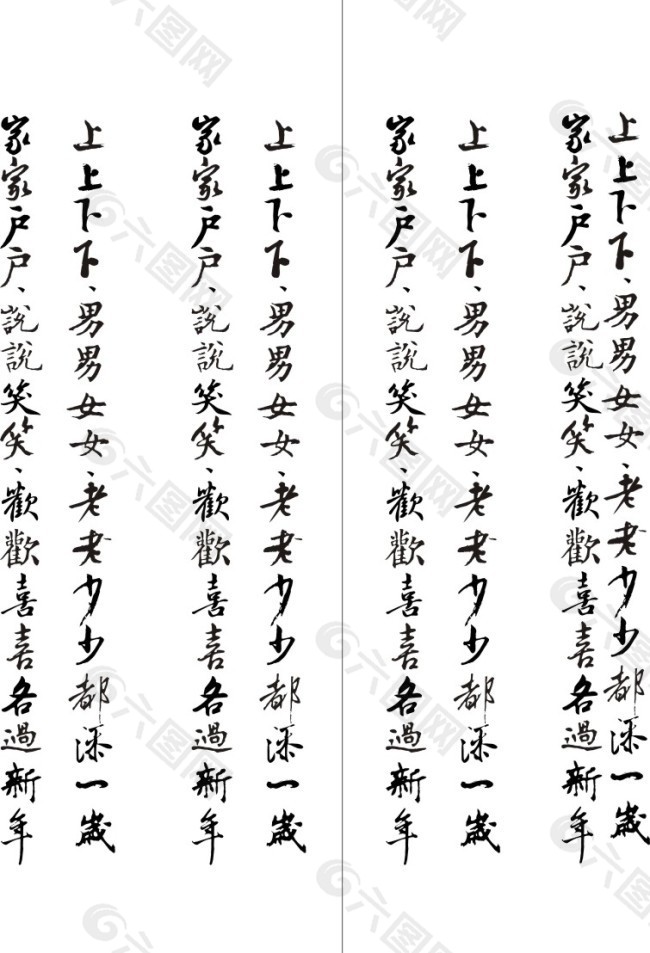 上上下下、男男女女、老老少少都添一歲
家家户户、說說笑笑、歡歡喜喜各過新年
上上下下、男男女女、老老少少都添一歲
家家户户、說說笑笑、歡歡喜喜各過新年
上上下下、男男女女、老老少少都添一歲
家家户户、說說笑笑、歡歡喜喜各過新年
上上下下、男男女女、老老少少都添一歲
家家户户、說說笑笑、歡歡喜喜各過新年
六图网